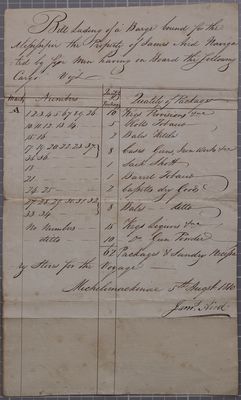 Bill lading of a Barge bound for the
Mississippi the Property of James Aird Naviga
ted by Men having on Board the following
Cargo Vizt
Marks Numbers Quality of Packages
1 2 3 4 5 6 7 8 9 26 10 Kegs Provisions
10 11 12 13 14 5 Rolls Tobacco
15 16 2 Bales
17 19 20 22 23 37
35 36 8 Cases Guns Iron Works &ca
18 1 Sack Shott
21 1 Barrel Tobacco
24 25 2 Cassetts dry Goods
27 28 29 30 31 32
33 34 8 Bales ditto
No Numbers 15 Kegs Liquors &ca
ditto 10 Do Gun Powder
62 Packages & Sundry Necessa
ry Stores for the Voyage
Michilimackinac 5th August
James Aird